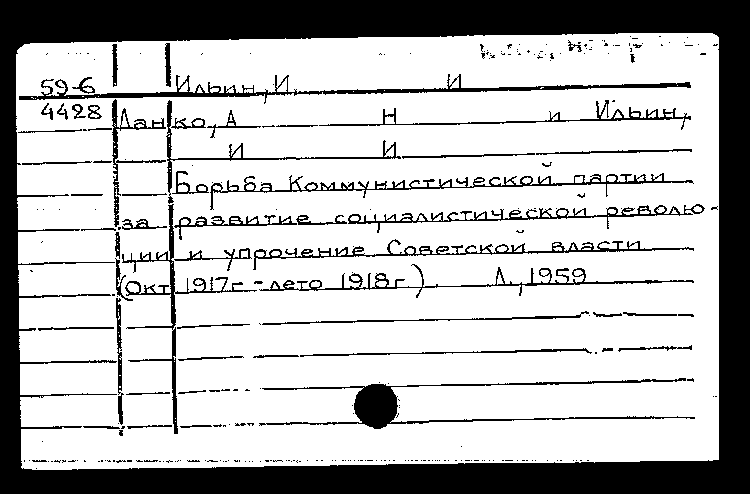 59-6 Ильин, И. И
4428 Ланко, А Н и Ильин,
И И
Борьба Коммунистической партии
за развитие социалистической револю-
ции и упрочение Советской власти
(Окт 1917г.-лето 1918г.) Л., 1959